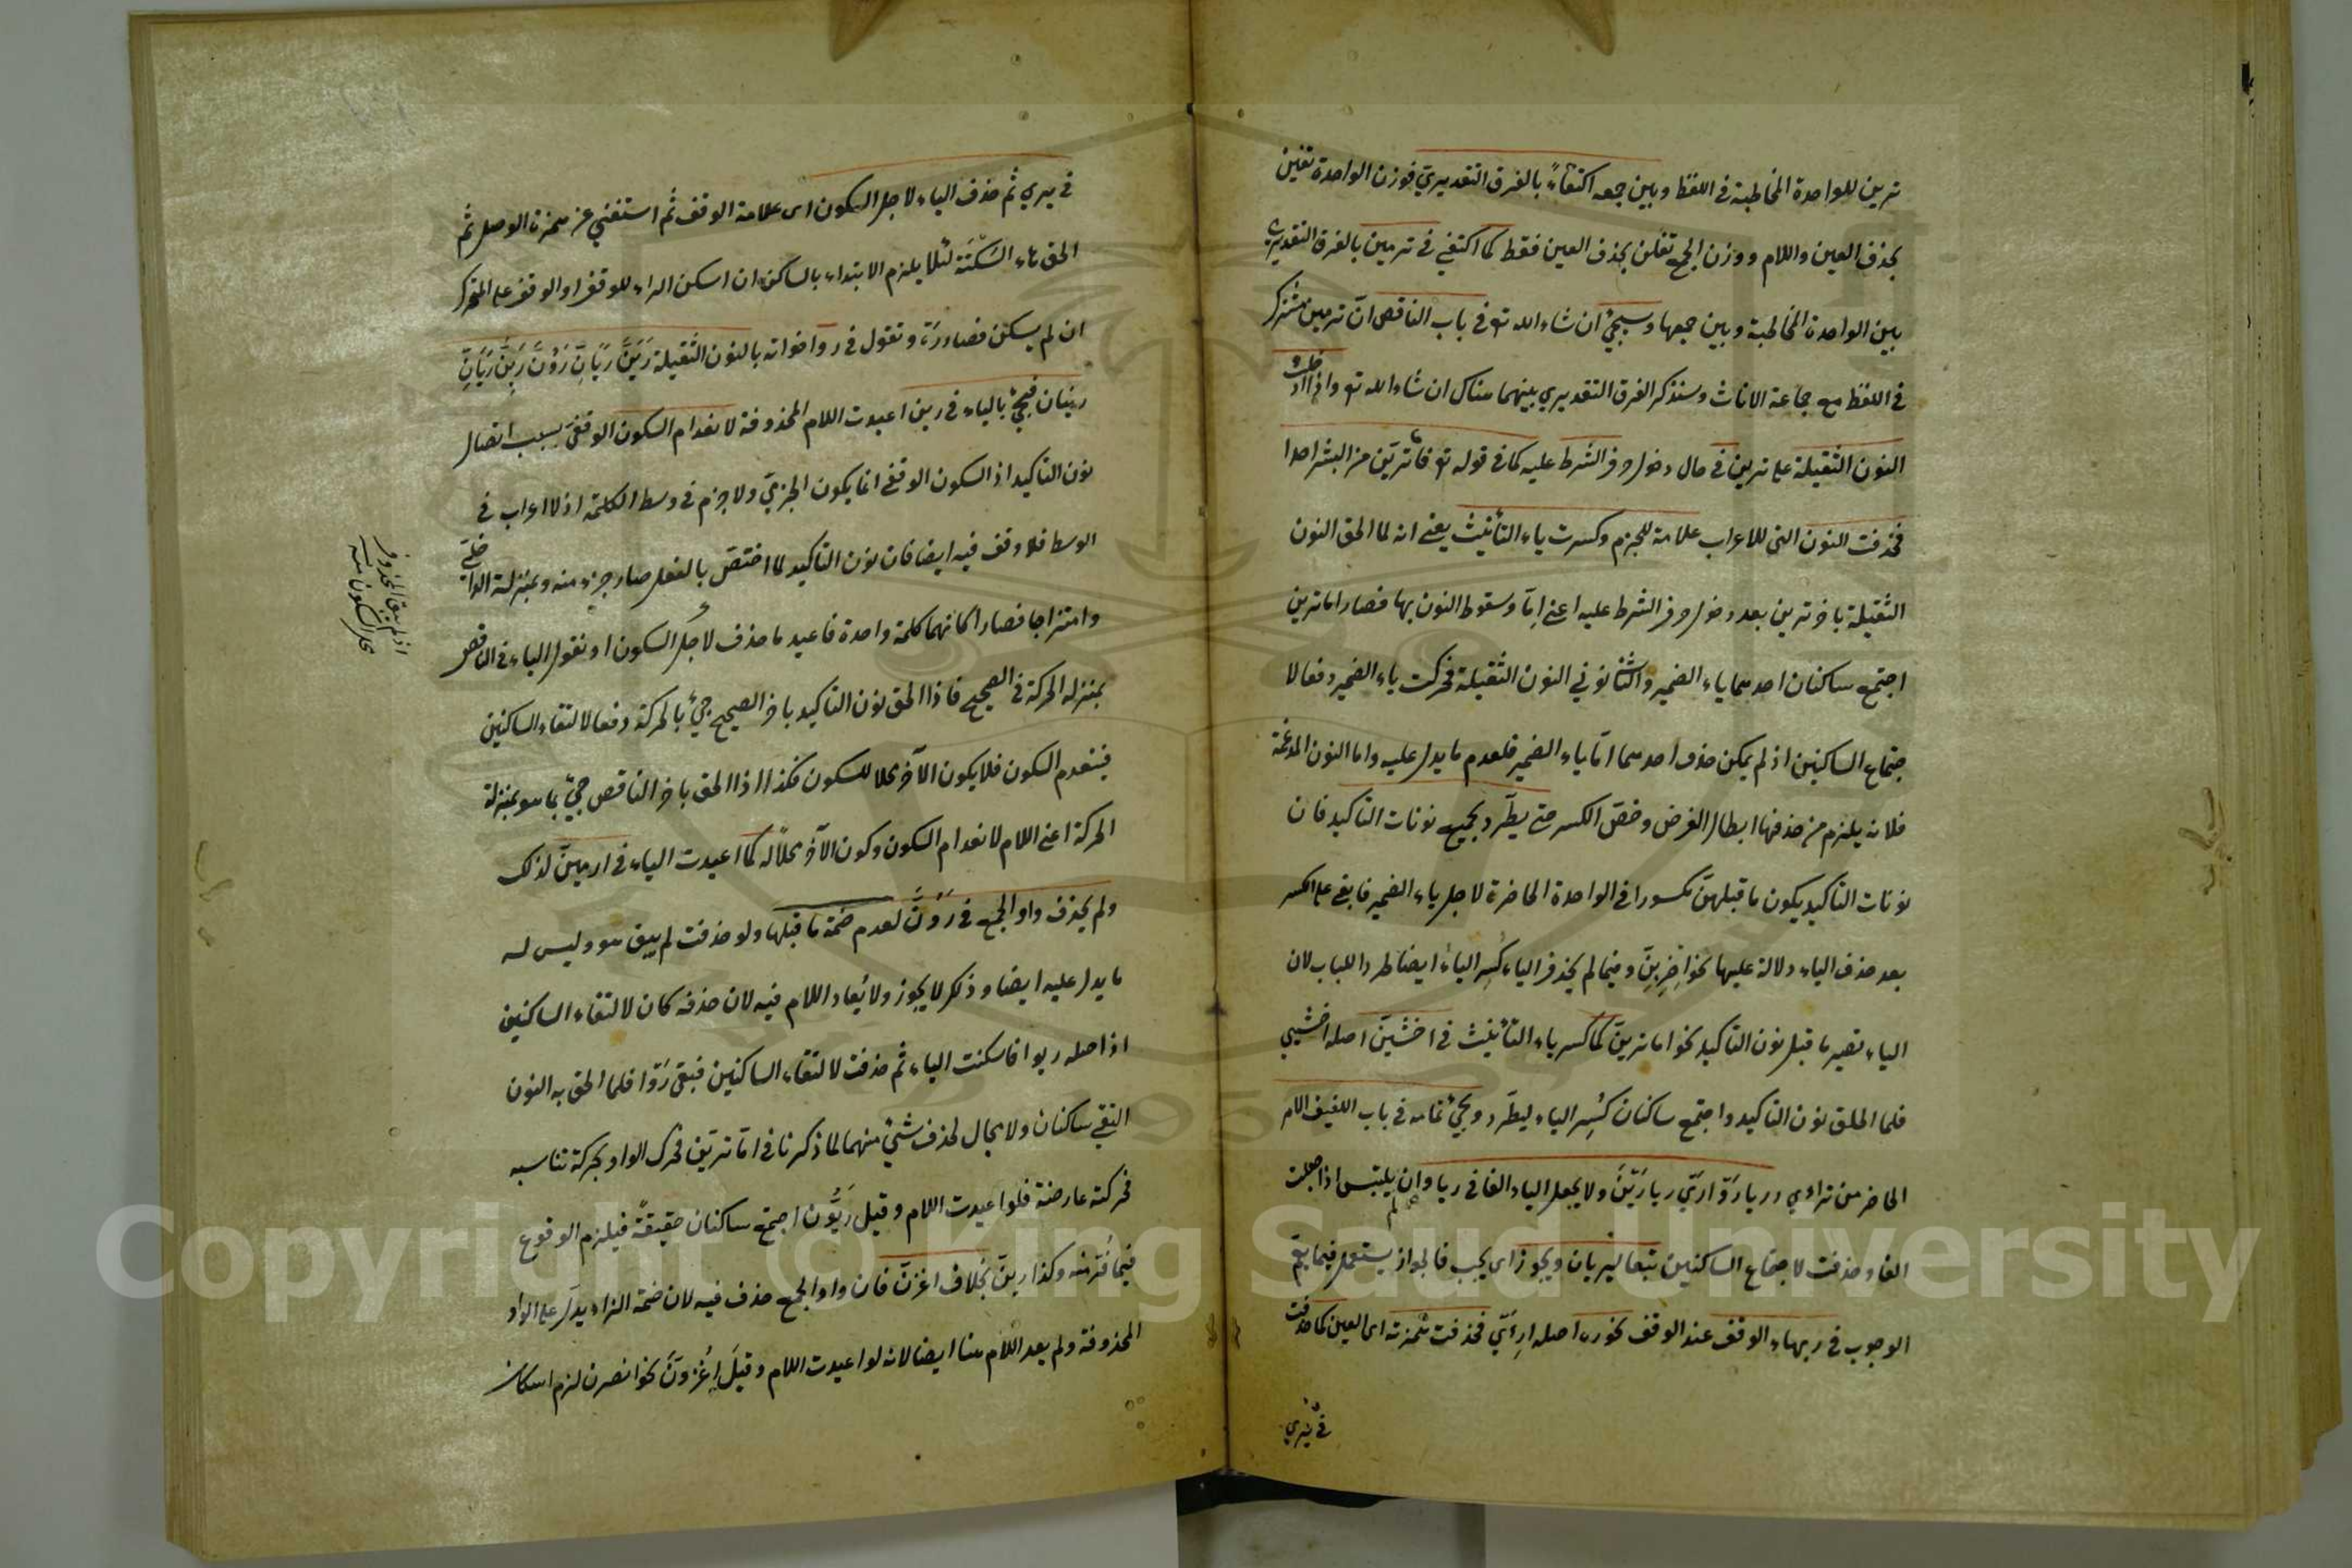 ترين للواحدة المخاطبة في اللفظ وبين جمعه اكتفاءً بالفرق التقديري فوزن الواحدة تفين
بحذف العين واللام ووزن الجمع تفلن بحذف العين فقط كما اكتفي في ترمين بالفرق التقديري
بين الواحدة المخاطبة وبين جمعها وسيجئ ان شاء الله تع في باب الناقص ان ترمين مشترك
في اللفظ مع جماعة الاناث وسنذكر الفرق التقديري بينهما هناك ان شاء الله تع واذا ادخلت
النون الثقيلة على ترين في حال دخول حرف الشرط عليه كما في قوله تع فاما ترين من البشر احدا
فحذفت النون التي للاعراب علامة للجزم وكسرت ياء التأنيث يعني انه لما الحق النون
الثقيلة باخر ترين بعد دخول حرف الشرط عليه اعني اما وسقوط النون بها فصار اما ترين
اجتمع ساكنان احدهما ياء الضمير والثانوني النون الثقيلة فحركت ياء الضمير دفعا لا
جتماع الساكنين اذ لم يمكن حذف احدهما امّا ياء الضمير فلعدم ما يدل عليه واما النون المدغمة
فلانه يلزم من حذفها ابطال الغرض وخصّ الكسر حتى يطّرد بجميع نونات التاكيد فان
نونات التاكيد يكون ما قبلهن مكسورا في الواحدة الحاضرة لاجل ياء الضمير فابقي على الكسر
بعد حذف الياء دلالة عليها نحو اضربنّ وفيما لم يحذف الياء كُسِر الياء ايضا طردا للباب لان
الياء تصير ما قبل نون التاكيد نحو اما ترينّ كما كسر ياء التأنيث في اخشينّ اصله اخشيي
فلما الحق نون التاكيد واجتمع ساكنان كُسِر الياء ليطّرد ويجئ تمامه في باب اللفيف الامر
الحاضر من ترى ر ريا رَوْا رَيْ ريا رَيْنَ ولا يجعل الياء الفا في ريا وان لم يلتبس اذا جعلت
الفا وحذفت لاجتماع الساكنين تبعا ليريان ويجوز اي يجب فالجواز يستعمل فيما يعم
الوجوب في ر بهاء الوقف عند الوقف نحو ره اصله ارأي فحذفت همزته اى العين كما حذفت
في يري
في يري ثم حذف الياء لاجل السكون اى علامة الوقف ثم استغني عن همزة الوصل ثم
الحق هاء السكتة لئلا يلزم الابتداء بالساكن ان اسكن الراء للوقف او الوقف على المتحرك
ان لم يسكن فصار رَه وتقول في ر واخواته بالنون الثقيلة رَيَنَّ رَيَانِّ رَوُنَّ رَيِنَّ رَيَانِّ
رينان فيجئ بالياء في رين اعيدت اللام المحذوفة لانعدام السكون الوقفي بسبب اتصال
نون التاكيد اذ السكون الوقفي انما يكون الجزي ولا جزم في وسط الكلمة اذ لا اعراب في
الوسط فلا وقف فيه ايضا فان نون التاكيد لما اختصّ بالفعل صار جزء منه وبمنزلة الداخلة
وامتزاجا فصارا كانهما كلمة واحدة فاعيد ما حذف لاجل السكون او نقول الياء في الناقص
بمنزلة الحركة في الصحيح فاذا الحق نون التاكيد باخر الصحيح جئ بالحركة دفعا لالتقاء الساكنين
فينعدم السكون فلا يكون الآخر محلا للسكون فكذا اذا الحق باخر الناقص جئ بما هو بمنزلة
الحركة اعني اللام لانعدام السكون وكون الآخر محلا له كما اعيدت الياء في ارمين لذلك
ولم يحذف واو الجمع في رَوُنَّ لعدم ضمة ما قبلها ولو حذفت لم يبق هو وليس له
ما يدل عليه ايضا وذلك لا يجوز ولا يُعاد اللام فيه لان حذفه كان لالتقاء الساكنين
اذ اصله ريوا فاسكنت الياء ثم حذفت لالتقاء الساكنين فبقي رَوْا فلما الحق به النون
التقي ساكنان ولا مجال لحذف شئ منهما لما ذكرنا في امّا ترينّ فحرك الواو بحركة تناسبه
فحركته عارضة فلو اعيدت اللام وقيل رَيُوُن اجتمع ساكنان حقيقةً فيلزم الوقوع
فيما فُرّ منه وكذا رينّ بخلاف اغزنّ فان واو الجمع حذف فيه لان ضمة الزاء يدل على الواو
المحذوفة ولم يعد اللام هنا ايضا لانه لو اعيدت اللام وقيل اغزونّ نحو انصرن لزم اسكان
اذ لم يبق المحذوف
محل السكون منه
Copyright © King Saud University